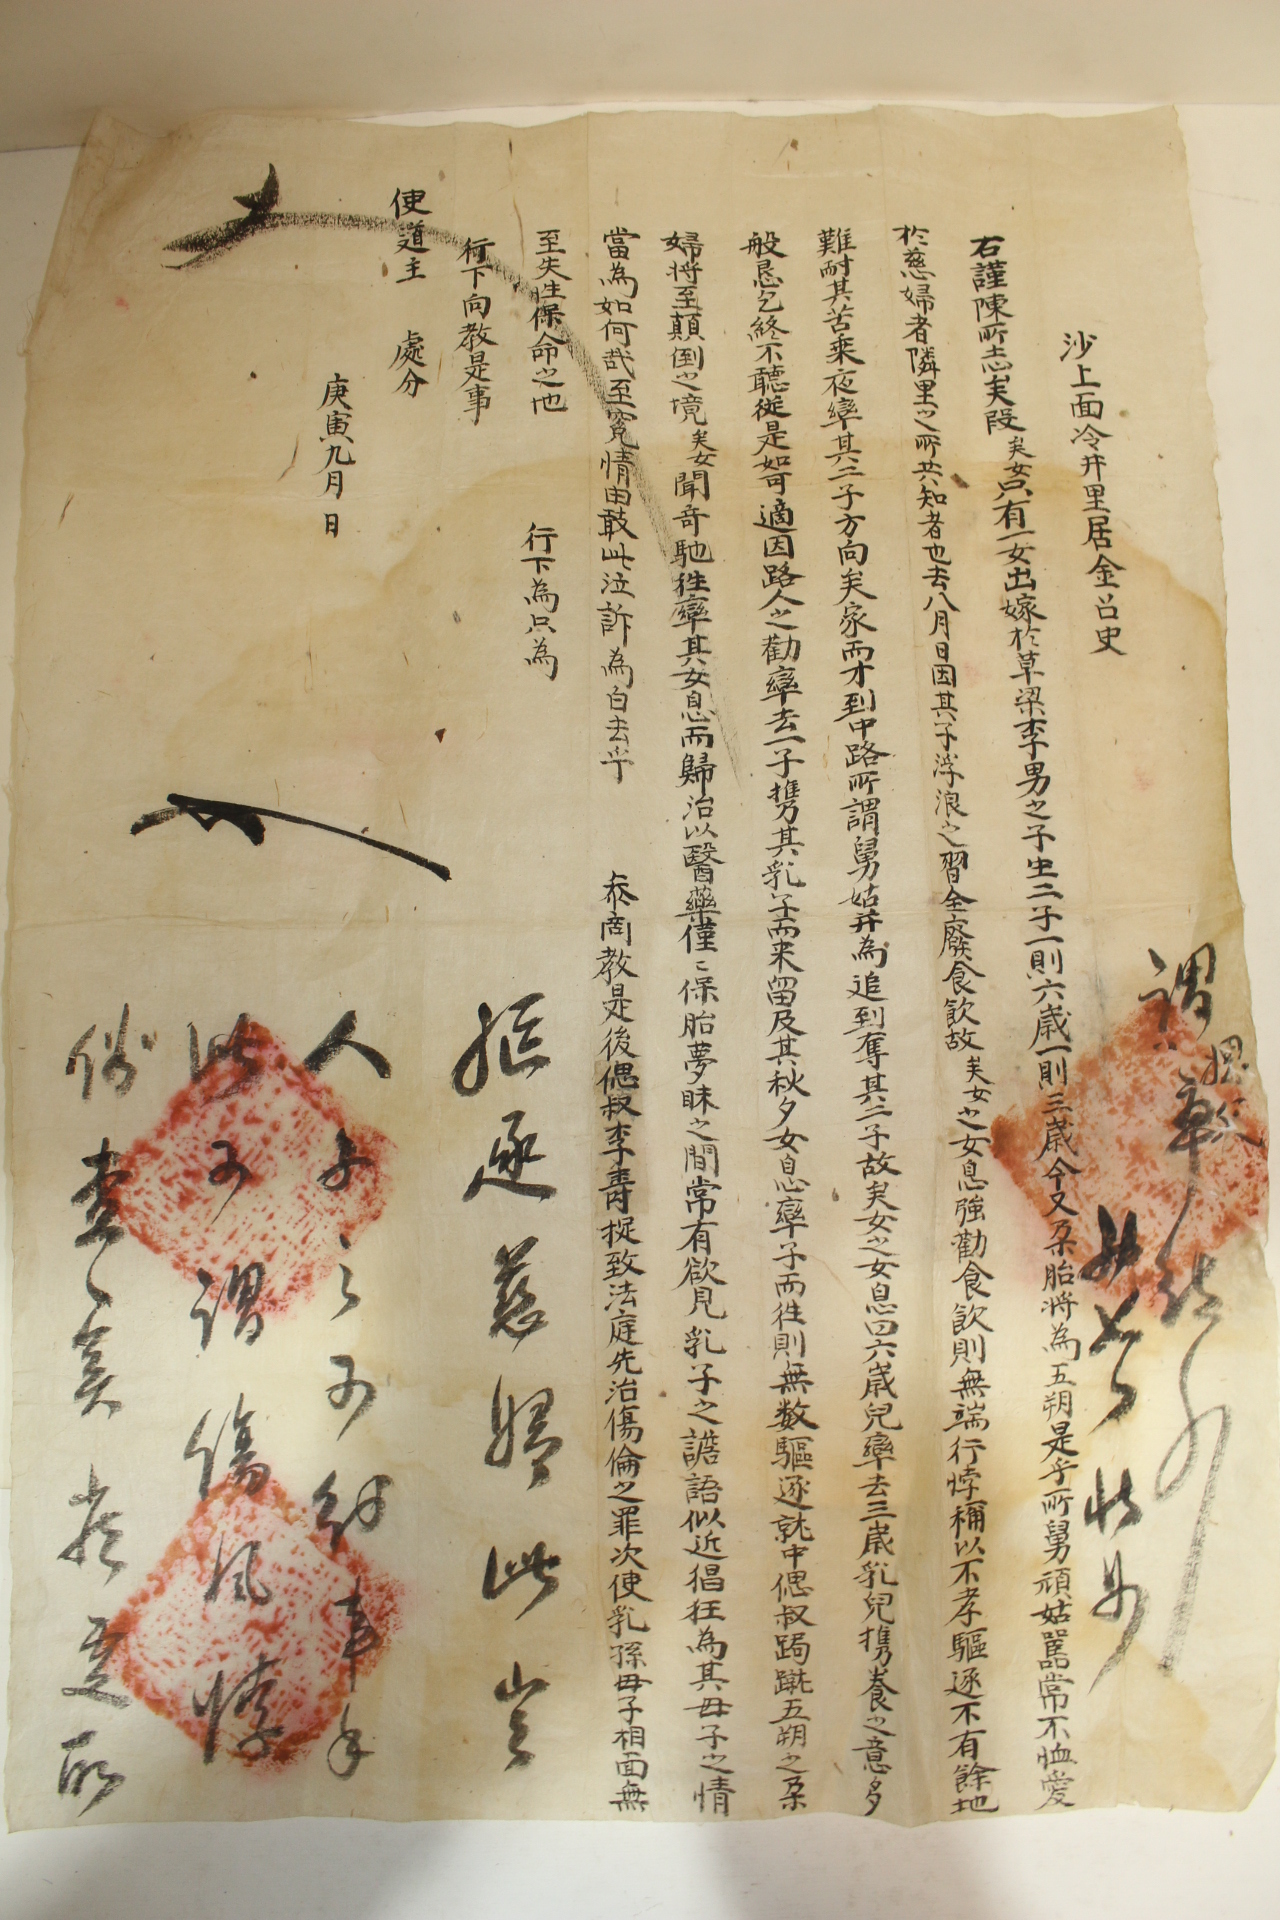 沙上面冷井里居金召史
右謹陳所志矣段矣女只有一女出嫁於草梁李男之子生二子一則六歲一則三歲今又孕胎將為五朔是乎所舅頑姑嚚常不恤愛
於慈婦者隣里之所共知者也去八月日因其子浮浪之習全廢食飮故矣女之女息強勸食飮則無端行悖稱以不孝驅逐不有餘地
難耐其苦乗夜率其二子方向矣家而才到中路所謂舅姑并為追到奪其二子故矣女之女息曰六歲兒率去三歲乳兒携養之意多
般恳乞終不聽從是如可適因路人之勸率去一子携其乳子而来留及其秋夕女息率子而徃則無数驅逐就中偲叔跼蹴五朔之孕
婦將至顛倒之境矣女聞奇馳徃率其女息而歸治以醫藥僅〻保胎夢昧之間常有欲見乳子之譫語似近猖狂為其母子之情
當為如何哉至寃情由敢此泣訴為白去乎 叅商教是後偲叔李壽捉致法庭先治傷倫之罪次使乳孫母子相面無
至失性保命之地 行下為只為
行下向教是事
使道主 處分
庚寅九月日
人 之 事
此 可謂傷風悖
俗